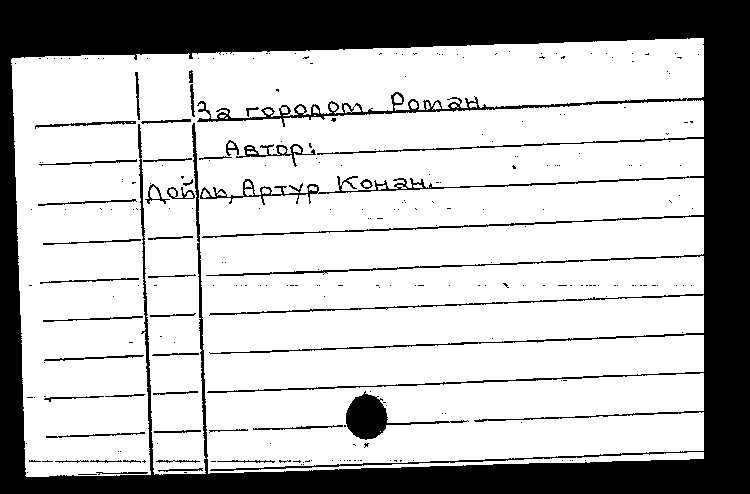 За городом. Роман.
Автор:
Дойль, Артур Конан.